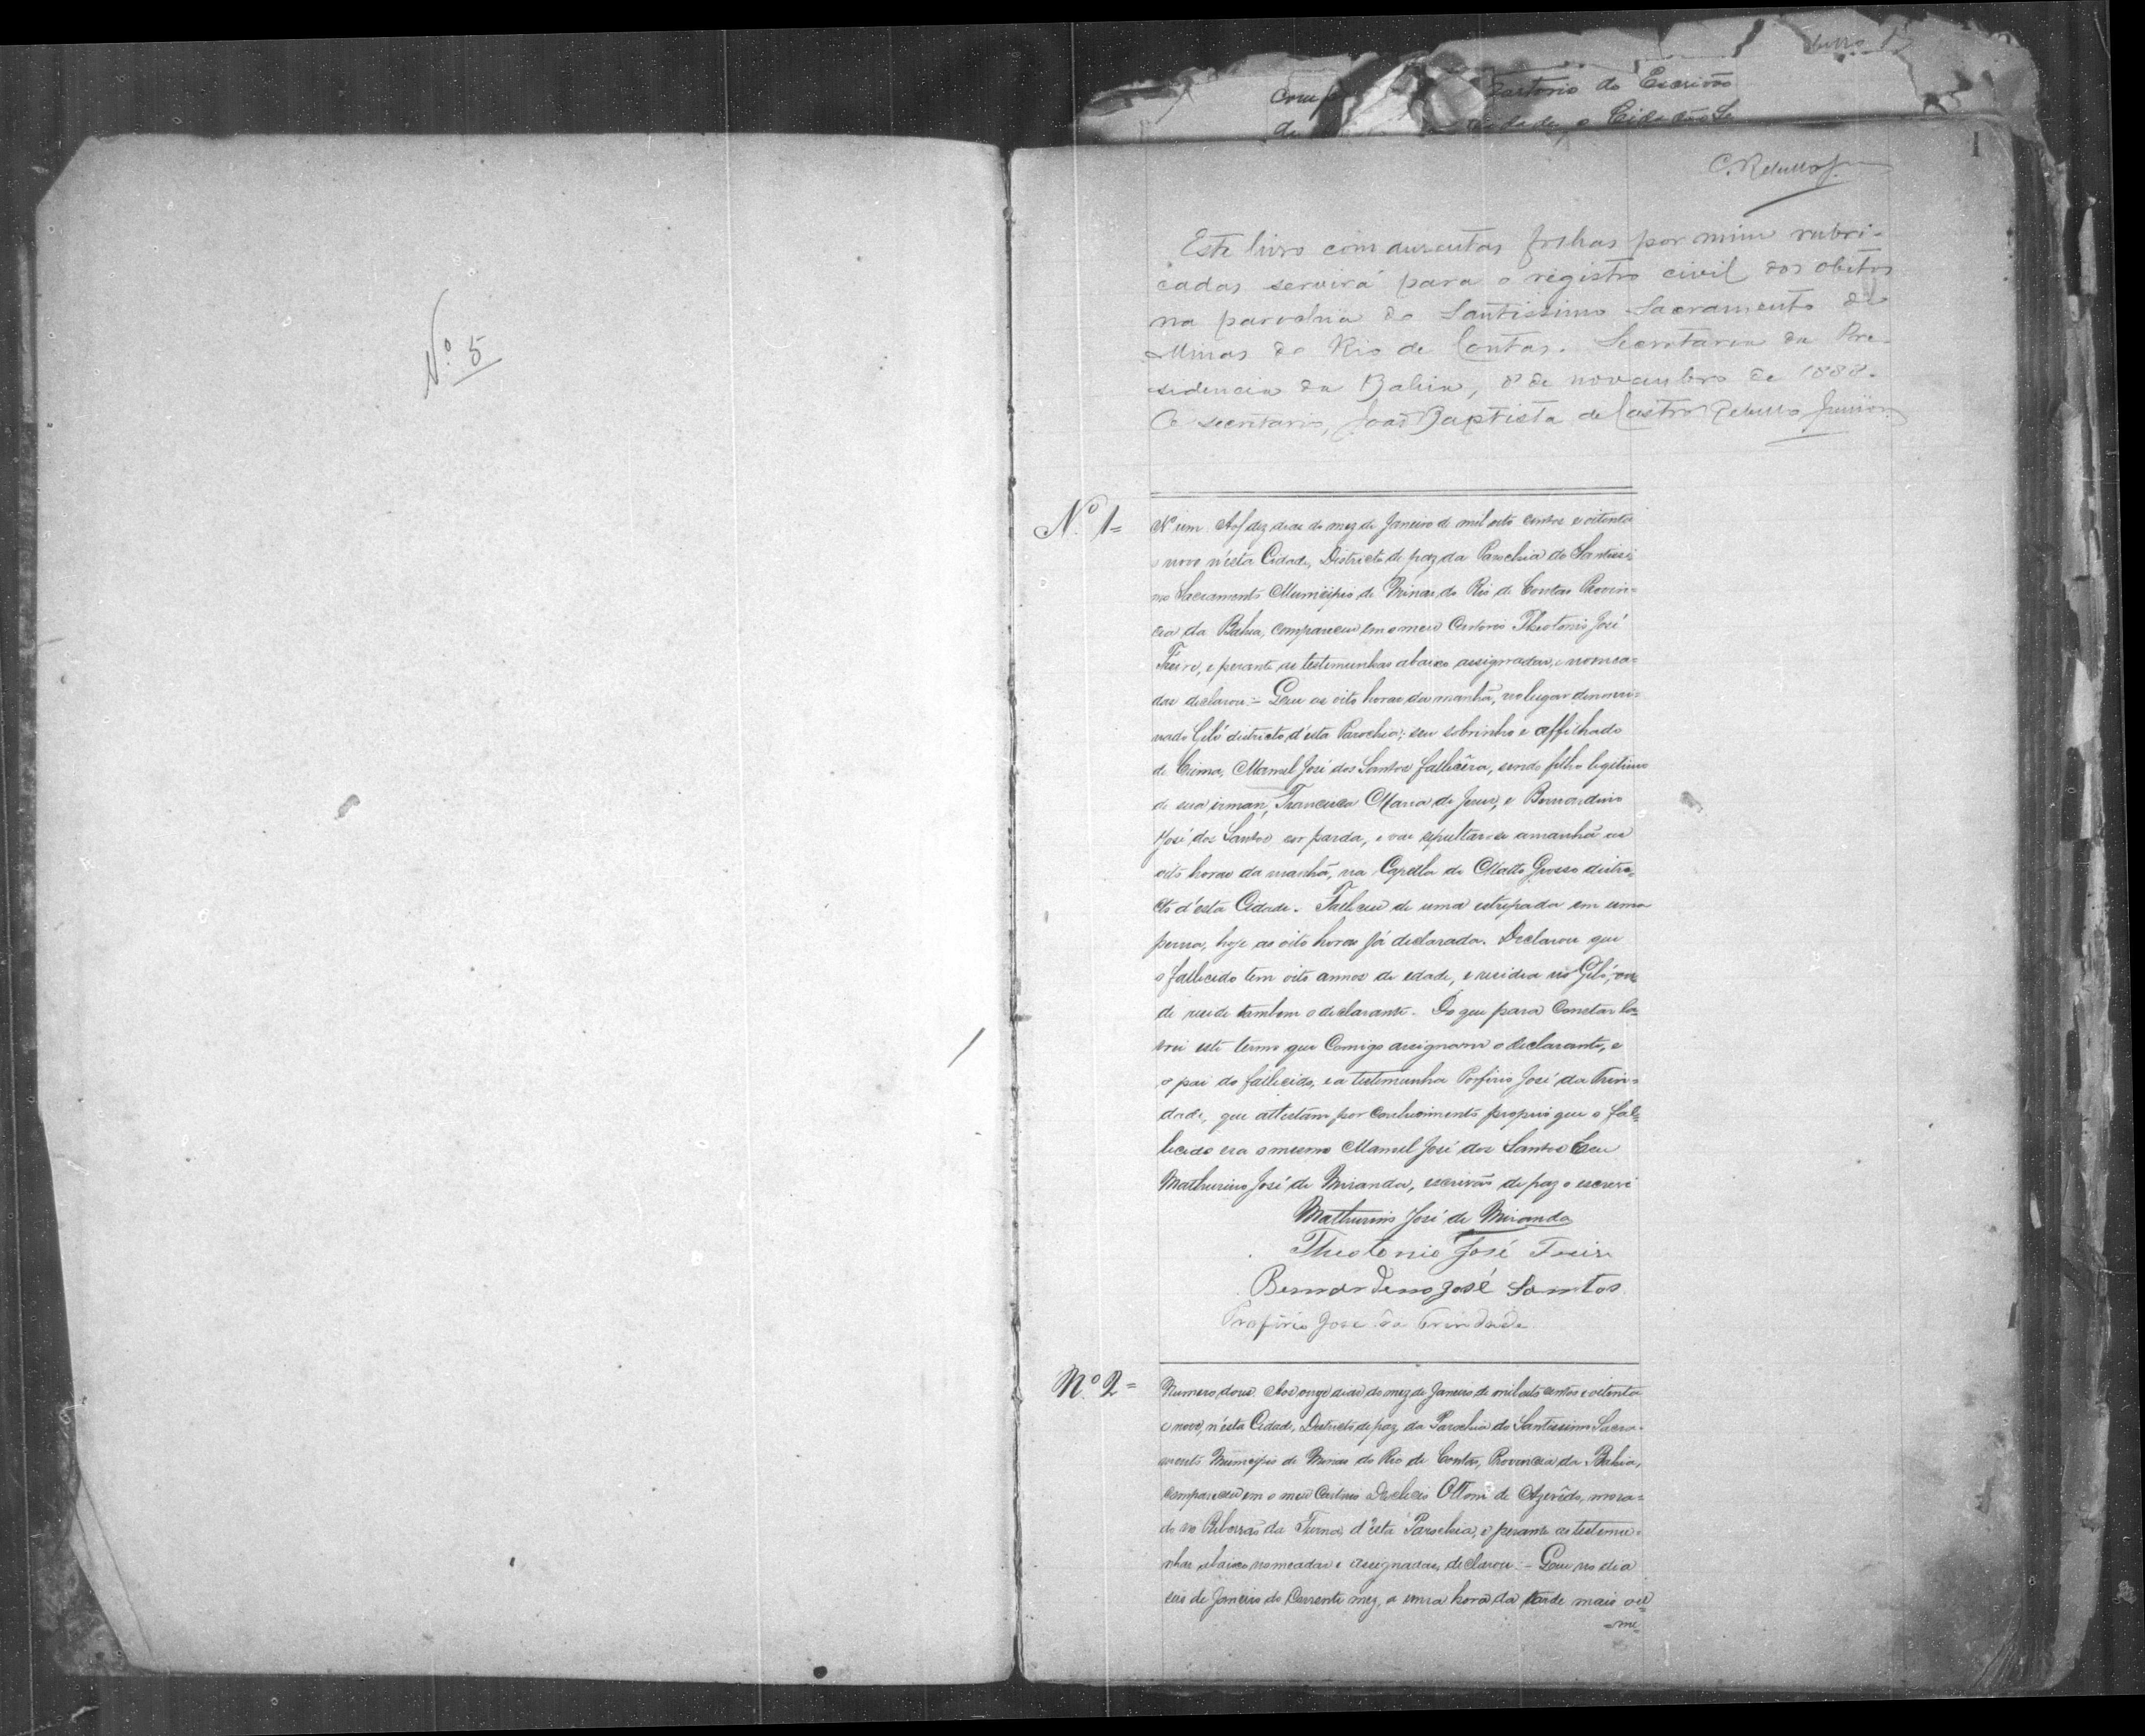 Nº 5
Cartorio do Escrivão
Cidade, o Cidadão
1
C. Rebello Jr.
Este livro com duzentas folhas por mim rubri-
cadas servirá para o registro civil dos obitos
na parochia do Santissimo Sacramento de
Minas do Rio de Contas. Secretaria da Pre-
sidencia da Bahia, 8 de novembro de 1888.
O secretario, João Baptista de Castro Rebello Junior
Nº 1=
Nº um. Aos dez dias do mez de Janeiro de mil oito centos e oitenta
e nove n'esta Cidade, Districto de paz da Parochia do Santissi-
mo Sacramento Municipio de Minas do Rio de Contas Provin=
cia da Bahia, compareceu em o meu Cartorio Theotonio José
Freire, e perante as testemunhas abaixo assignadas, e nomea=
das declarou:- Que as oito horas da manhã, no lugar denomi=
nado Giló districto d'esta Parochia; seu sobrinho e affilhado
de Crisma, Manuel José dos Santos fallecêra, sendo filho legitimo
de sua irman, Francisca Maria de Jesus, e Bernardino
José dos Santos cor parda, e vae sepultar-se amanhã as
oito horas da manhã, na Capella de Matto Grosso distri=
cto d'esta Cidade. Falleceu de uma estrepada em uma
perna, hoje as oito horas já declarada. Declarou que
o fallecido tem oito annos de edade, e residia no Giló, on=
de reside tambem o declarante. Do que para Constar la=
vrei este termo que Comigo assignam o declarante, e
o pai do fallecido, e a testemunha Porfirio José da Trin=
dade, que attestam por conhecimento proprio que o fal=
lecido era o mesmo Manuel José dos Santos Eeu
Mathurino José de Miranda, escrivão de paz o escrevi
Mathurino José de Miranda
Theotonio José Freire
Bernardeno José Santos
Profirio José da Trindade
Nº 2=
Numero dous. Aos onze dias do mez de Janeiro de mil oito centos e oitenta
e nove, n'esta Cidade, Districto de paz da Parochia do Santissimo Sacra-
mento Municipio de Minas do Rio de Contas, Provincia da Bahia,
compareceu em o meu Cartorio Ottoni de Azevêdo, mora=
do no Ribeirão da Furna, d'esta Parochia, e perante as testemu-
nhas abaixo nomeadas e assignadas, declarou:- Que no dia
seis de Janeiro do Corrente mez, a uma hora da tarde mais ou
=me=